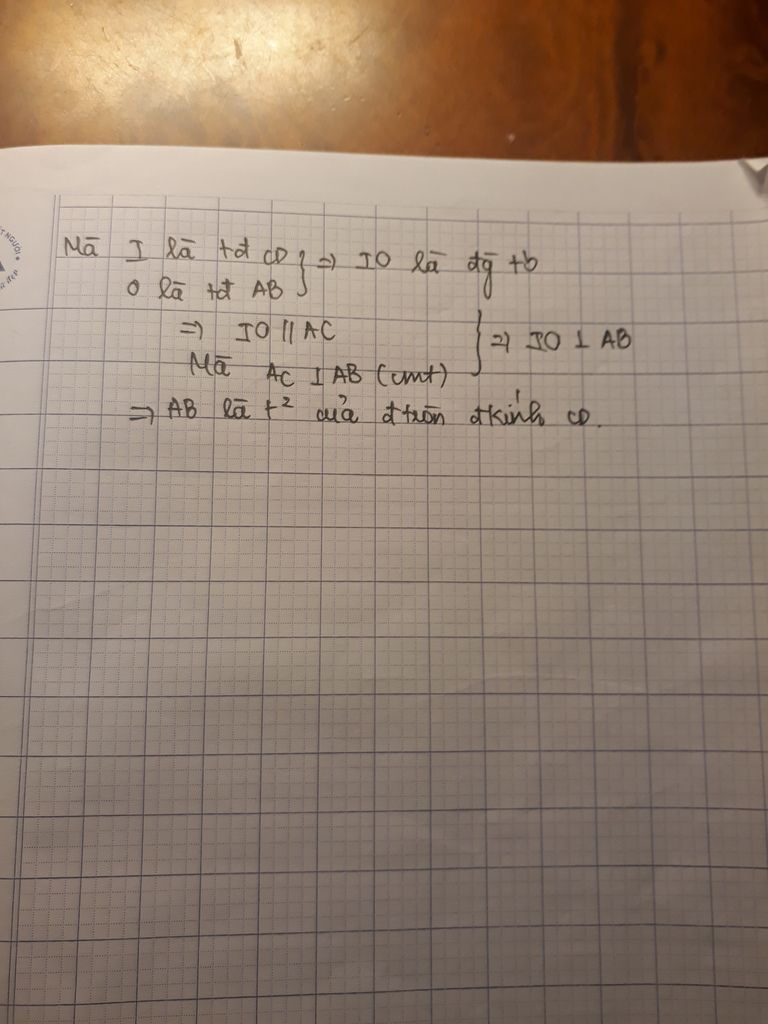 Mà I là tđ CD } => IO là đg tb
O là tđ AB
=> IO // AC } => IO ⊥ AB
Mà AC ⊥ AB (cmt)
=> AB là t² của đtròn đkính CD.